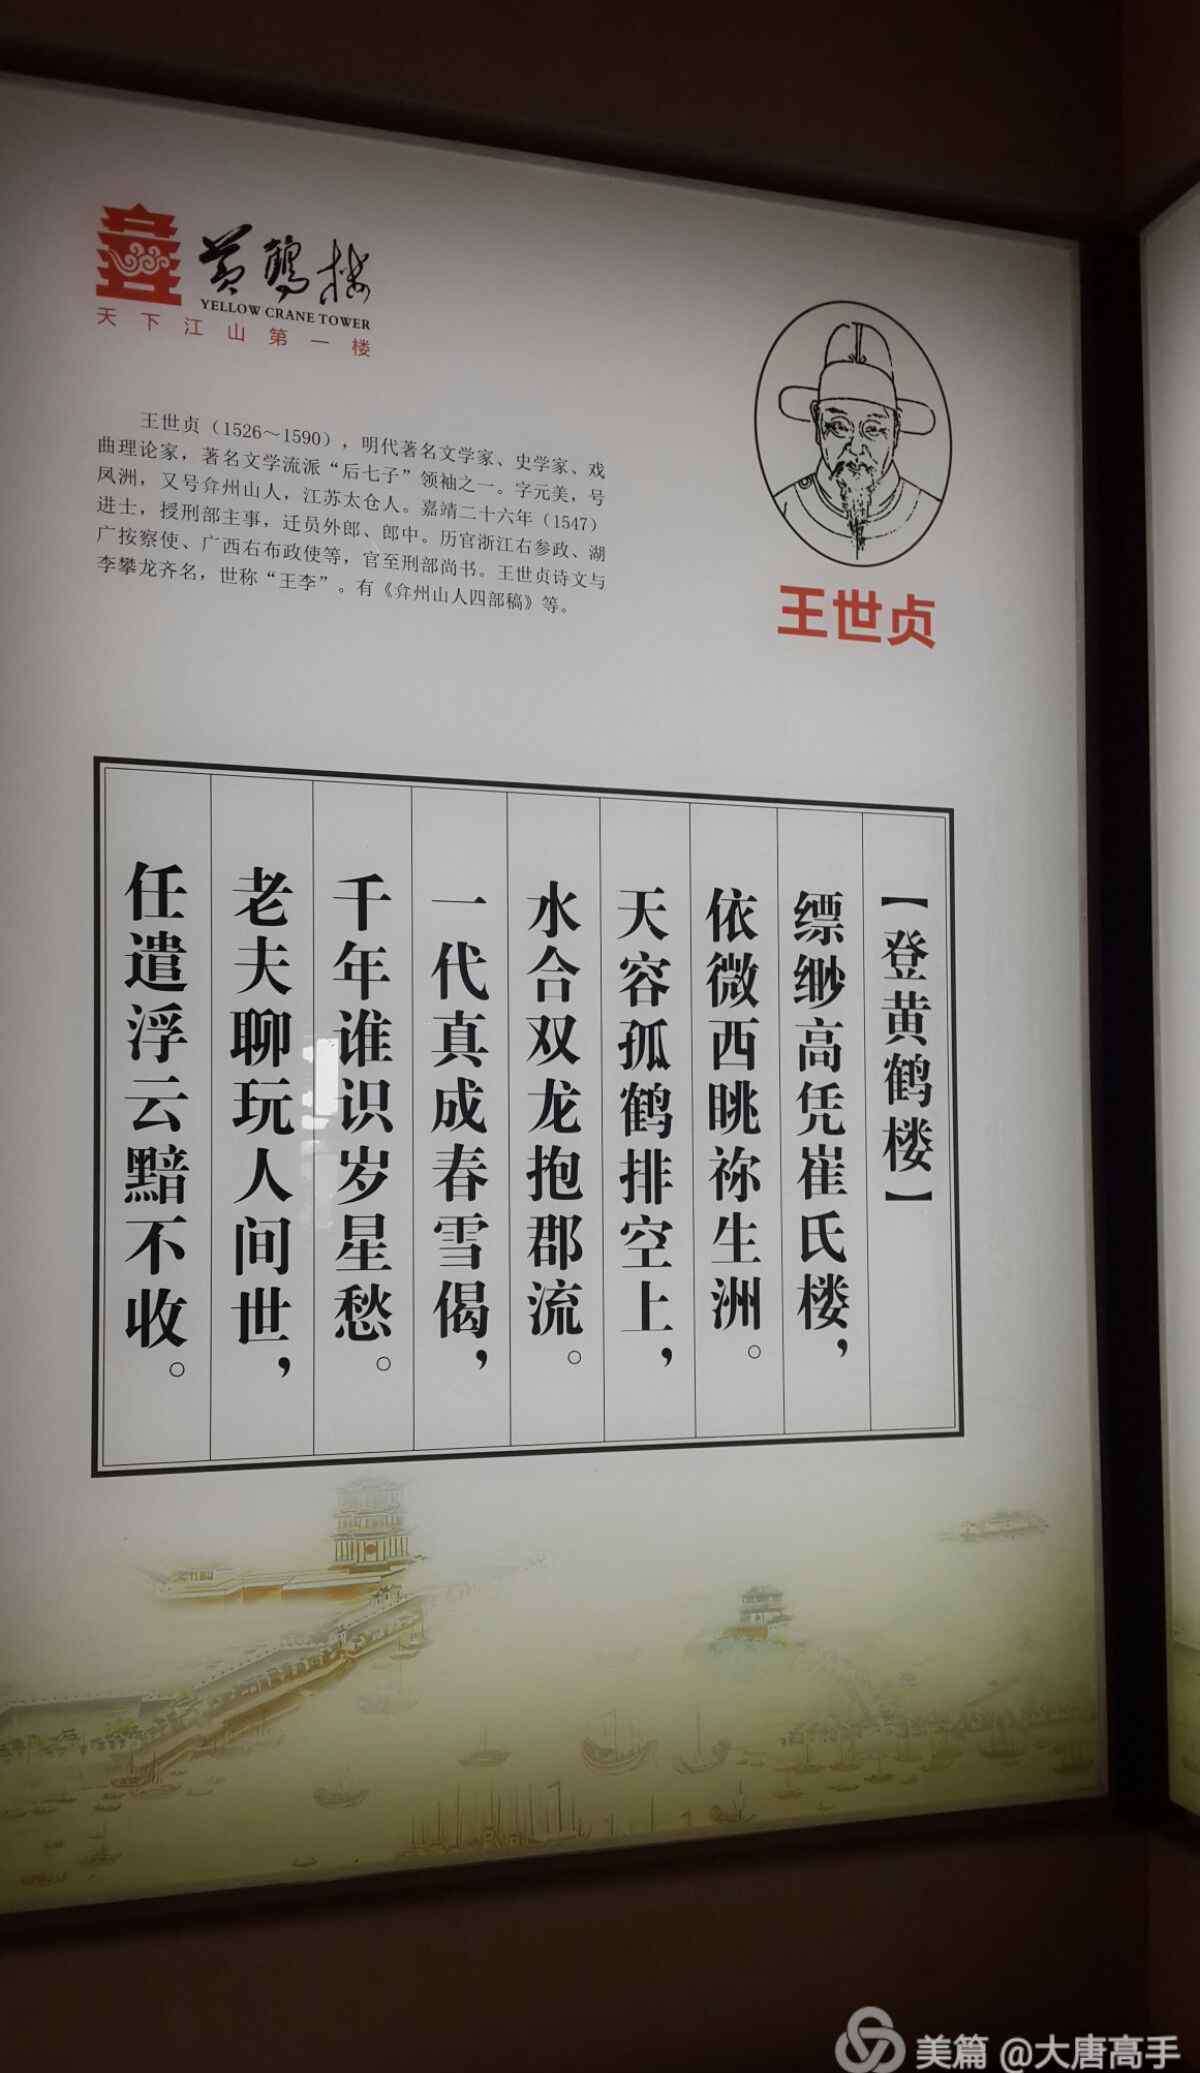 黄鹤楼
YELLOW CRANE TOWER
天下江山第一楼
王世贞（1526～1590），明代著名文学家、史学家、戏
曲理论家，著名文学流派“后七子”领袖之一。字元美，号
凤洲，又号弇州山人，江苏太仓人。嘉靖二十六年（1547）
进士，授刑部主事，迁员外郎、郎中。历官浙江右参政、湖
广按察使、广西右布政使等，官至刑部尚书。王世贞诗文与
李攀龙齐名，世称“王李”。有《弇州山人四部稿》等。
王世贞
【登黄鹤楼】
缥缈高凭崔氏楼，
依微西眺祢生洲。
天容孤鹤排空上，
水合双龙抱郡流。
一代真成春雪偈，
千年谁识岁星愁。
老夫聊玩人间世，
任遣浮云黯不收。
美篇 @大唐高手